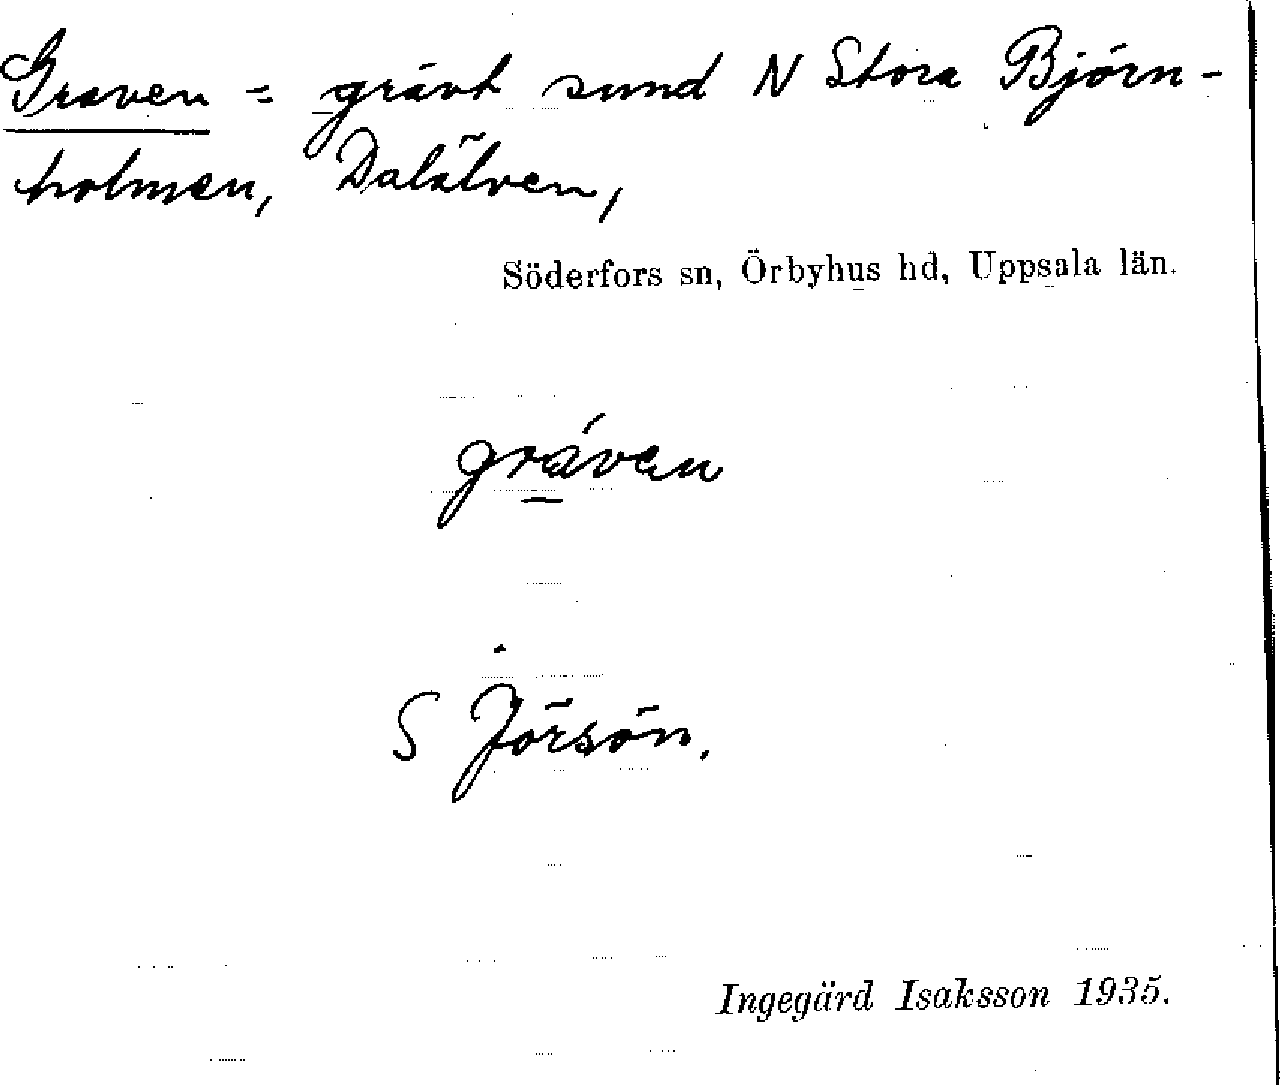 Graven = grävt sund N Stora Björn-
holmen, Dalälven,
Söderfors sn, Örbyhus hd, Uppsala län.
gráven
S Jörsön.
Ingegärd Isaksson 1935.